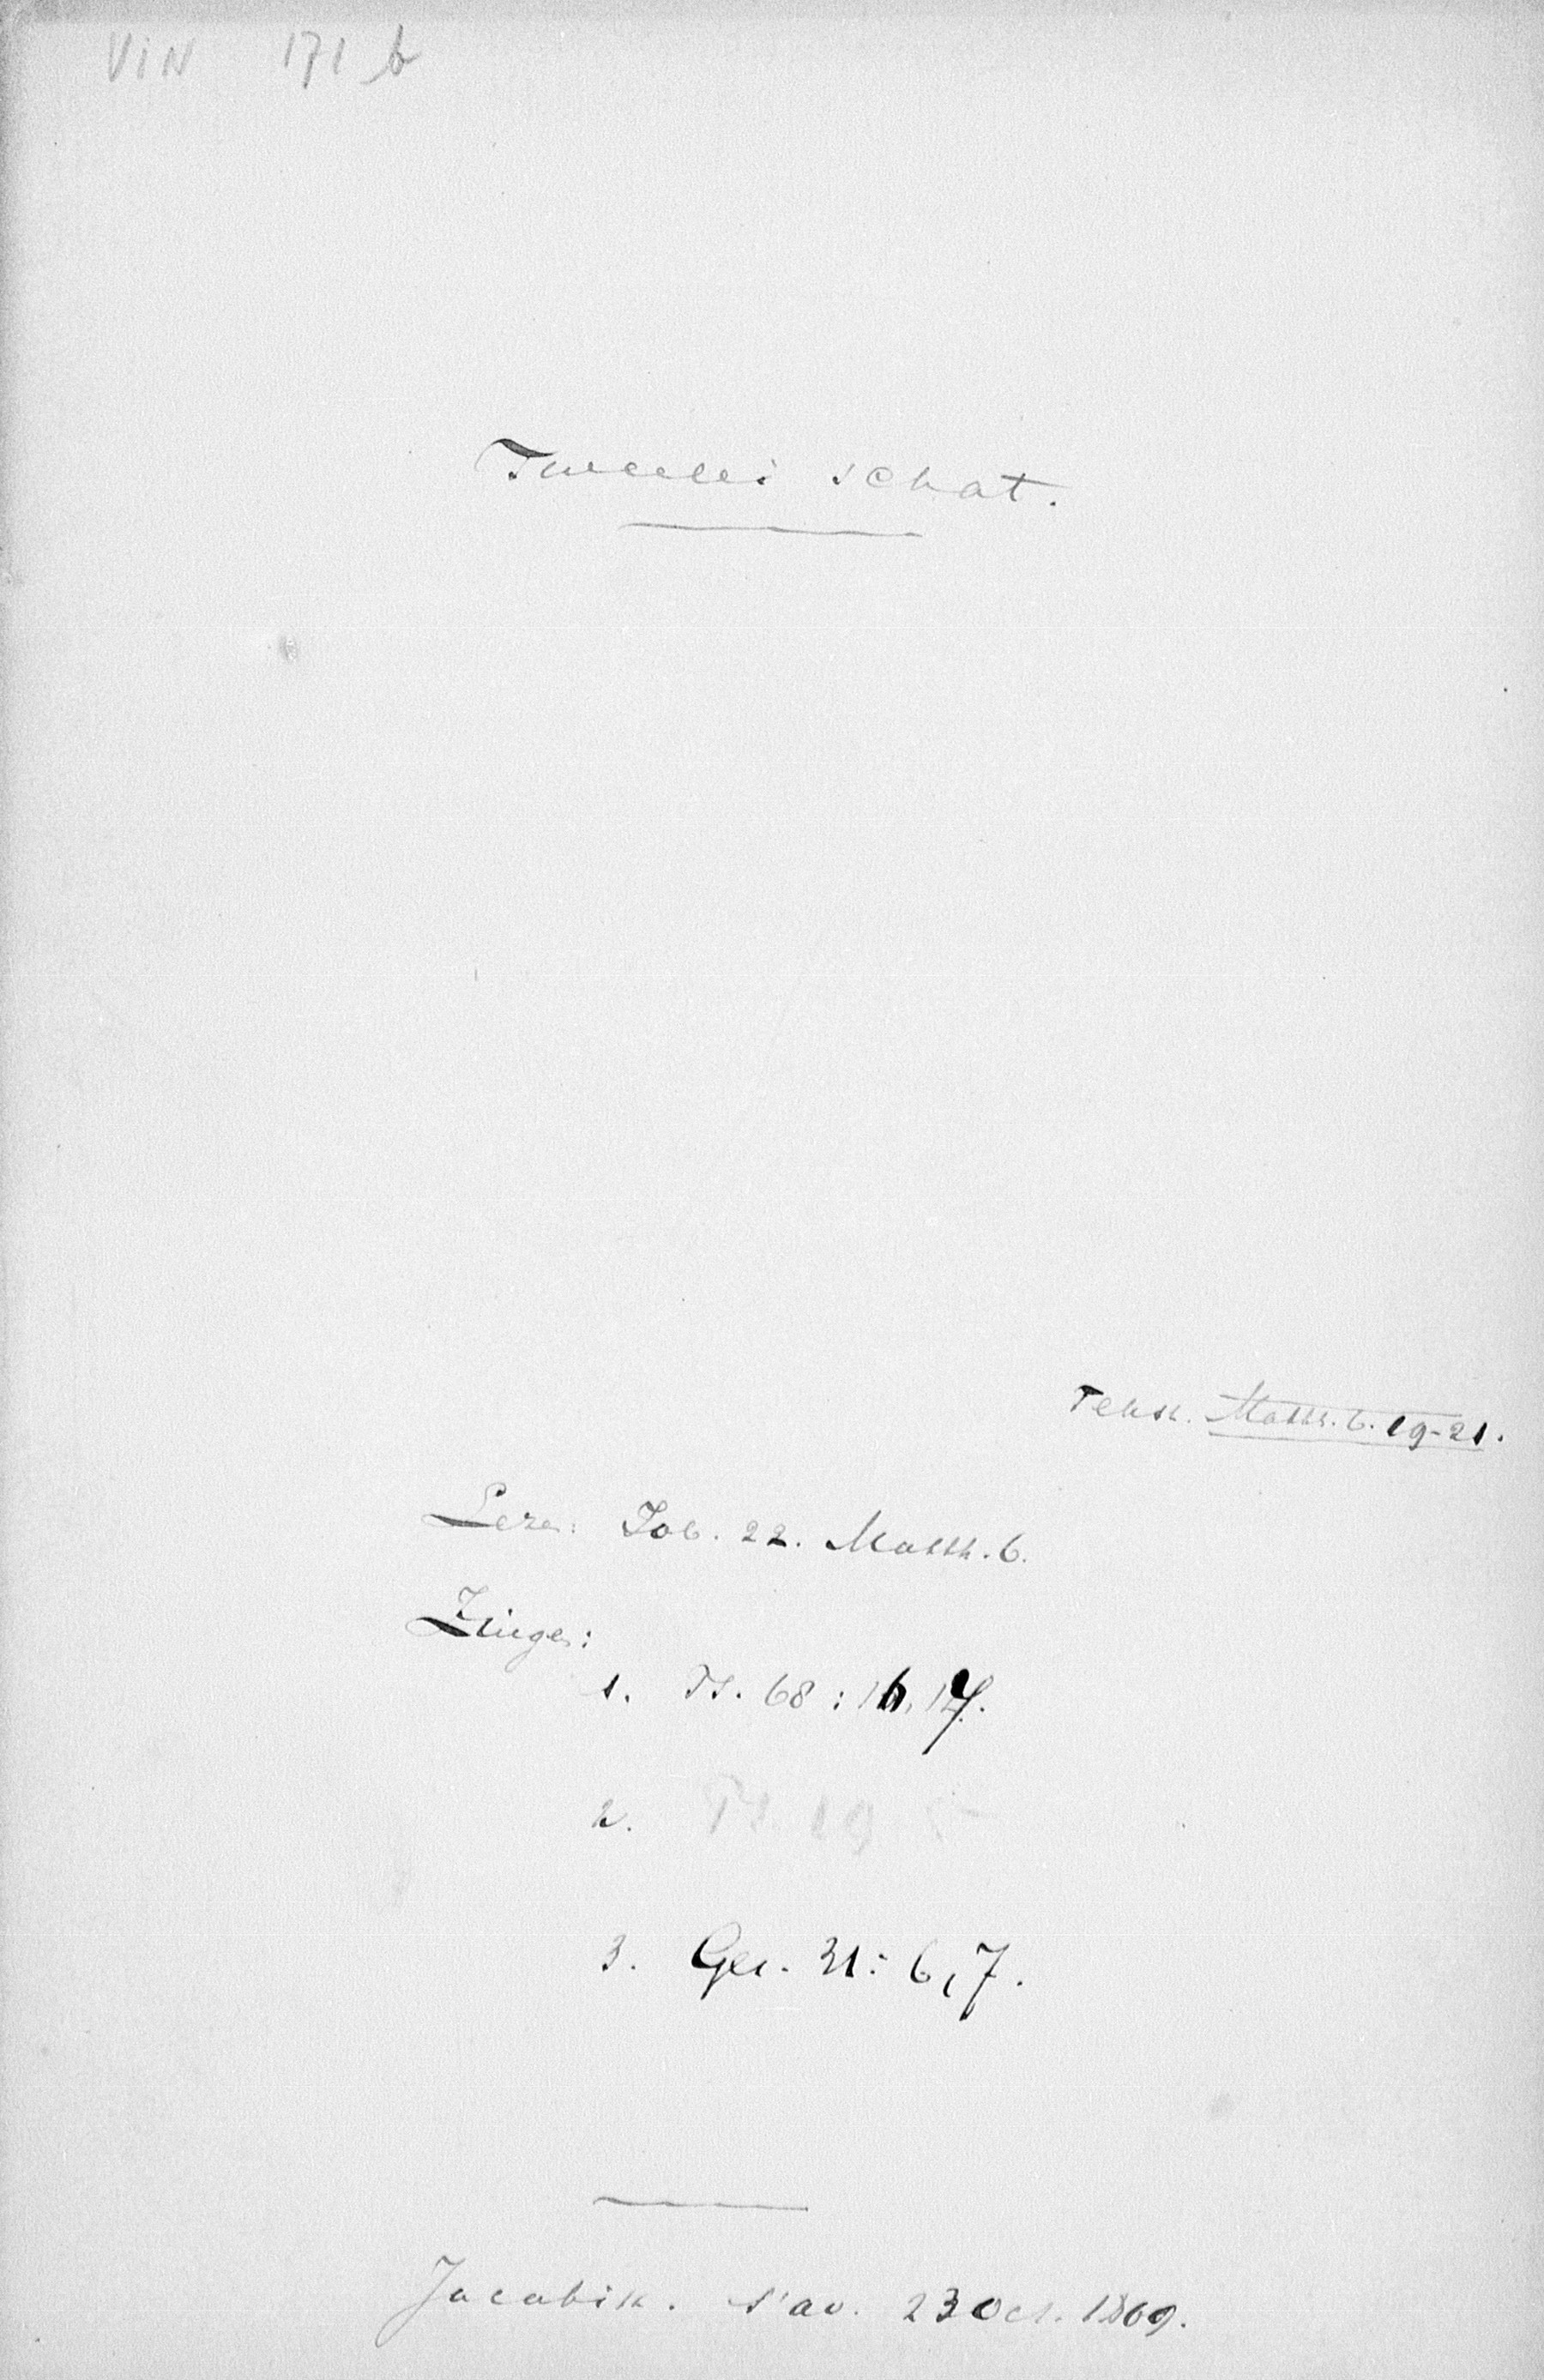 VIN 171 b
Tweeërlei schat.
Tekst. Matth. 6. 19-21.
Leze: Job. 22. Matth. 6.
Zinge:
1. Ps. 68 : 16, 17.
2. Ps. 19
3. Gez. 31 : 6, 7.
Jacobik. s'av. 23 Oct. 1869.